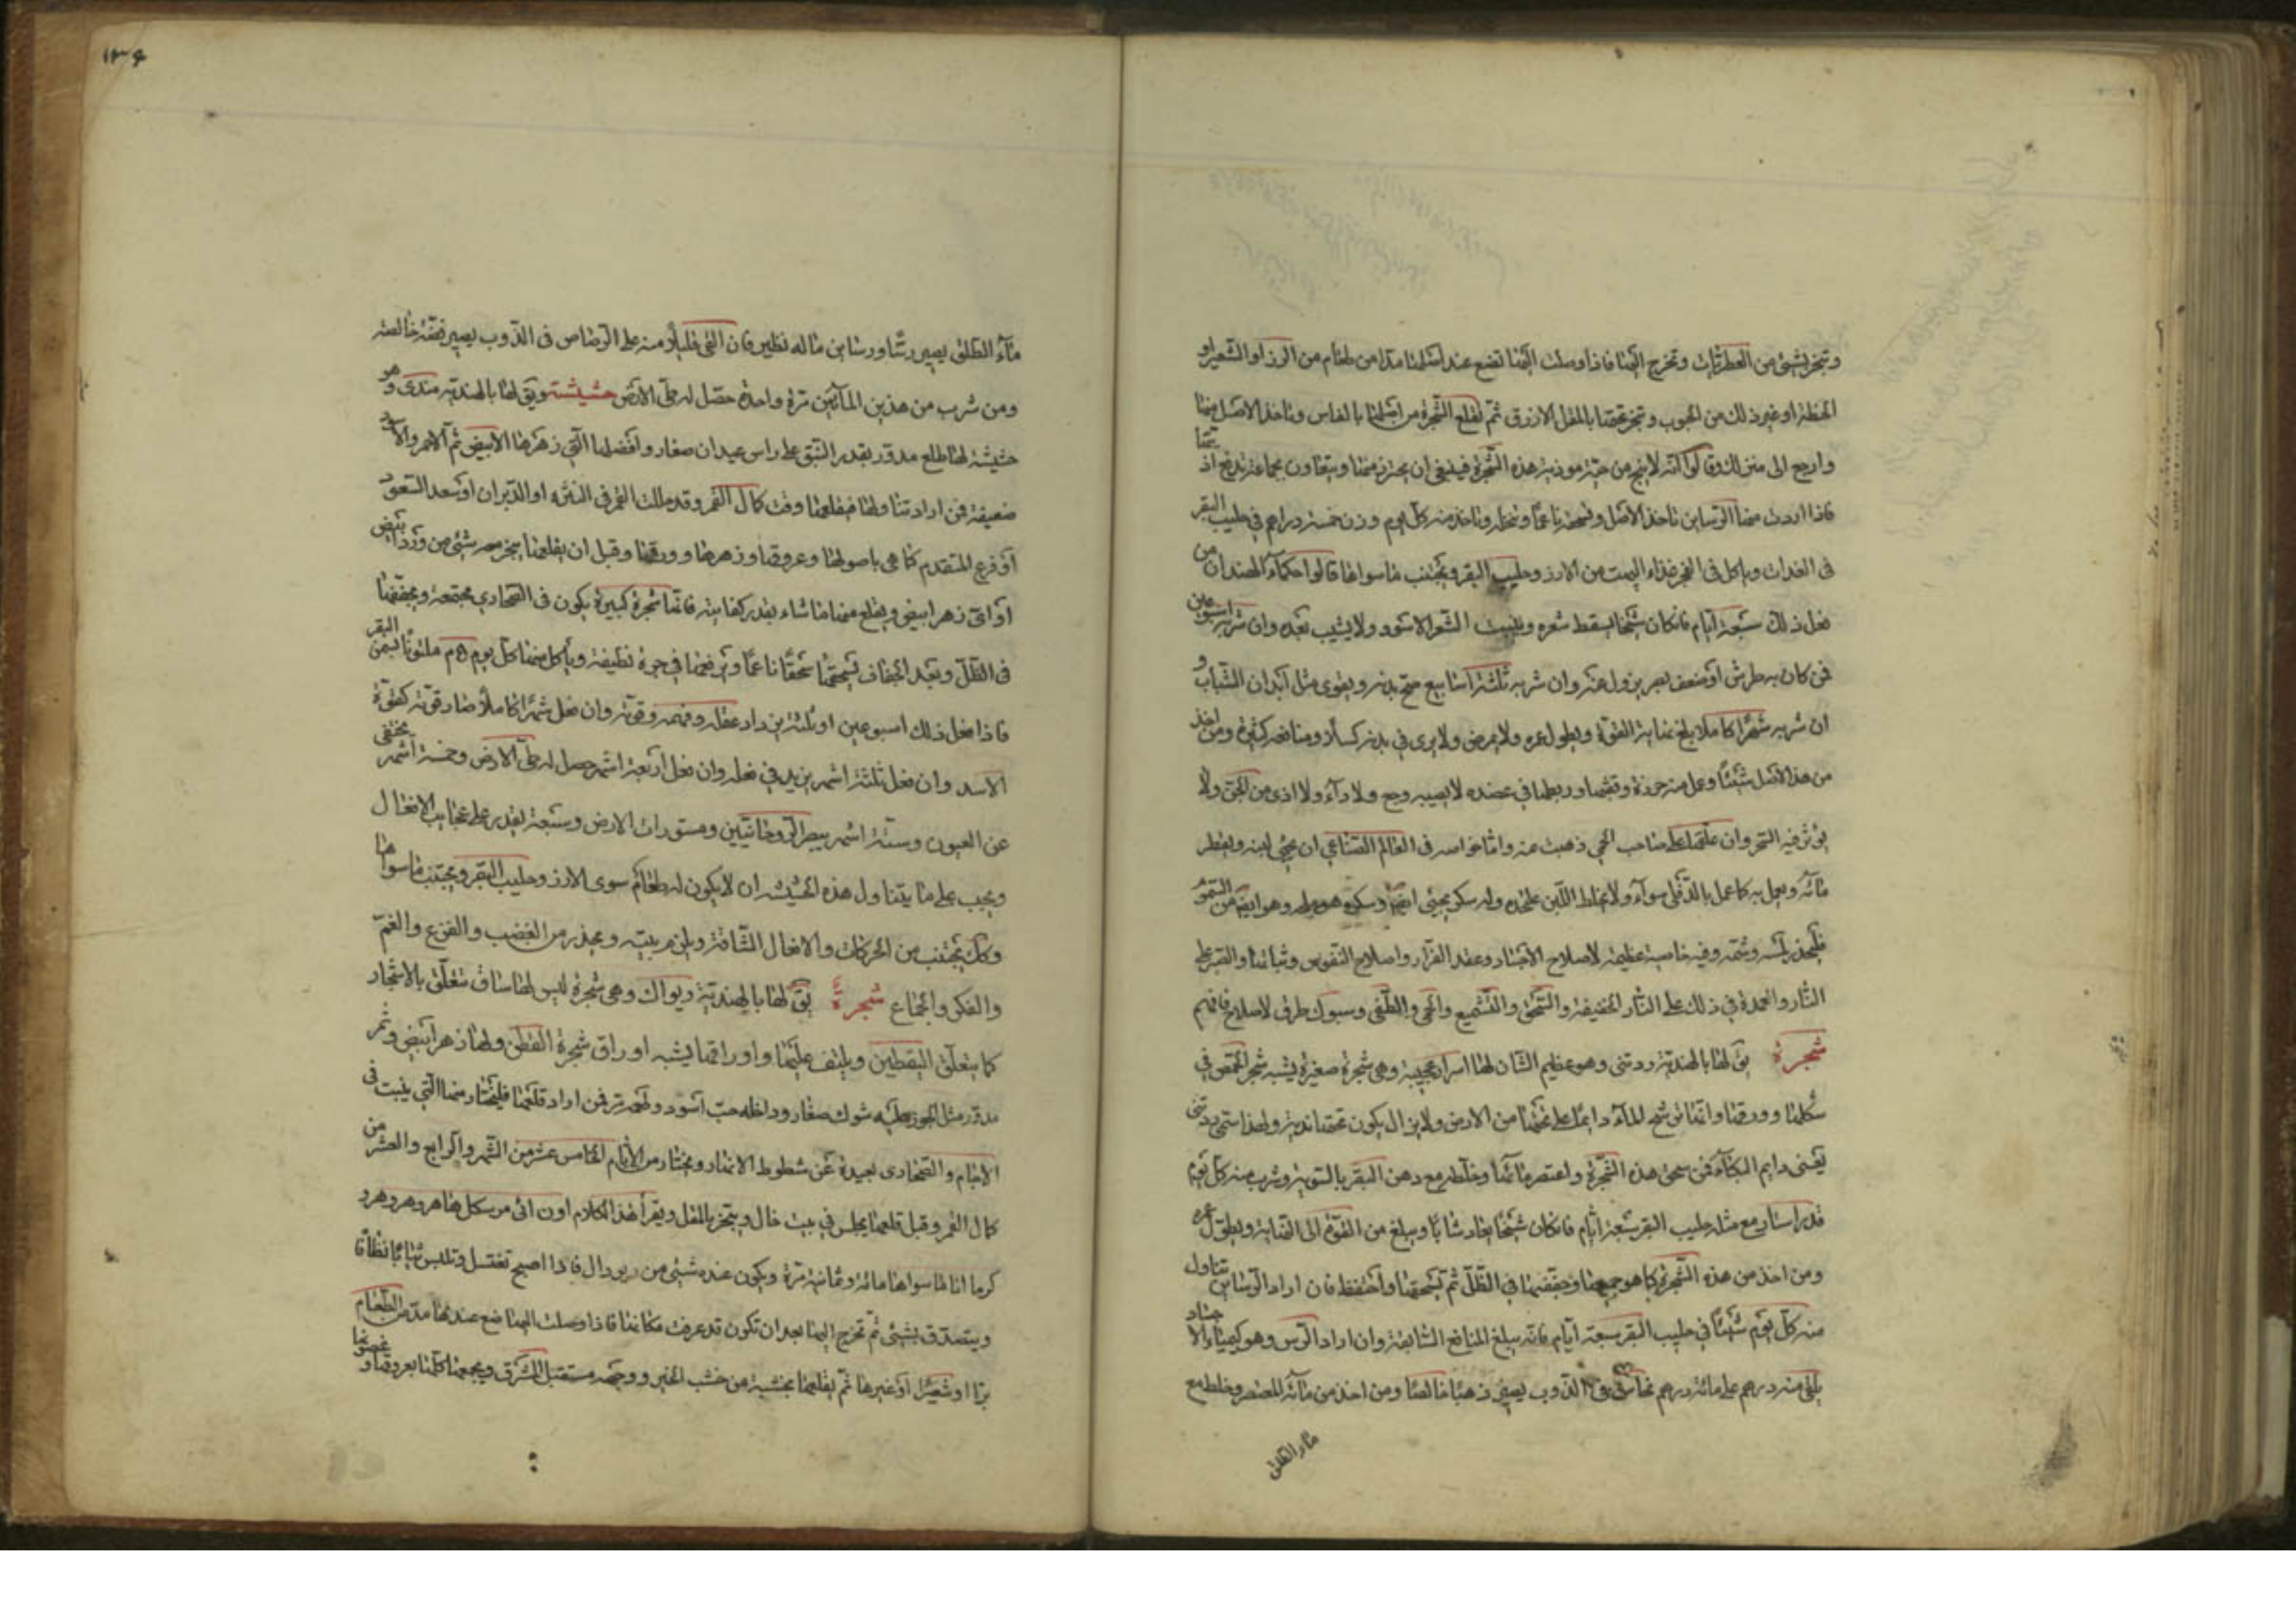 وتبخر بشئ من العطريات وتخرج اليها فاذا وصلت اليها تضع عند اصلها مدا من طعام من الرز او الشعير او
الحنطة او غير ذلك من الحبوب وتبخر تحتها بالمقل الازرق ثم تقلع الشجرة من اصلها بالفاس وتاخذ الاصل منها
وارجع الى منزلك وقالوا انه لا ينج من حية موذية هذه الشجرة فينبغى ان يحترز منها ويتعاون بجماعة تدفع اذيتها
فاذا اردت منها الرساين تاخذ الاصل وتسحقه ناعما وتنخله وتاخذ منه كل يوم وزن خمسة دراهم فى حليب البقر
فى الغداة وياكل فى الفجر غذاء البهت من الارز وحليب البقر ويجتنب ما سواها قالوا حكماء الهند ان من
فعل ذلك سبعة ايام فان كان شيخا يسقط شعره وينبت الشعر الاسود ولا يشيب بعده وان شربه اسبوعين
فمن كان به طرش او ضعف بصر يزول عنه وان شربه ثلثة اسابيع صح بدنه ويقوى مثل ابدان الشباب و
ان شربه شهرا كاملا بلغ غاية القوة ويطول عمره ولا يمرض ولا يرى فى بدنه كسلا ومنافعه كثيرة ومن اخذ
من هذا الاصل شيئا وعمل منه خرزة وتقبها وربطها فى عضده لا يصيبه وجع ولا داء ولا اذى من الجن ولا
يؤثر فيه السحر وان علقها على صاحب الحمى ذهبت عنه واما خواصه فى العالم الصناعى ان يجئ لبنه ويقطر
مائه ويعمل به كما عمل بالدفلى سواء ولا يخلط اللبن على حده وله سكر يجئى ايضا وهو ايضا من السموم
فليحذر لمسه وشمه وفيه خاصية عظيمة لاصلاح الاجساد وعقد الفرار واصلاح النفوس وثباتها والصبر على
النار والعمدة فى ذلك على النار الخفيفة والسحق والتشميع والحمى والطفى وسبوك طرق لاصلاح فافهم
شجرة يق لها بالهندية ردنتى وهو عظيم الشان لها اسرار عجيبة وهى شجرة صغيرة يشبه شجر الحمص فى
شكلها وورقها وانها ترشح الماء دايما على تحتها من الارض ولا يزال يكون تحتها نديه ولهذا سمى ردنتى
يعنى دايم البكاء فمن سحق هذه الشجرة واعتصر مائها وخلطه مع دهن البقر بالسوية وشرب منه كل يوم
قدر استار مع مثله حليب البقر سبعة ايام فان كان شيخا يعاد شابا ويبلغ من القوة الى الغاية ويطول عمره
ومن اخذ من هذه الشجرة كما هو جميعها وجففها فى الظل ثم تسحقها واحتفظ فان اراد الرساين تناول
منه كل يوم شيئا فى حليب البقر سبعة ايام فانه يبلغ المنافع السابقة وان اراد الرس وهو كيمياء الاجساد
يلقى منه درهم على مائة درهم نحاس فى الذوب يصير ذهبا خالصا ومن اخذ من مائه المعتصر وخلط مع
ماء الطلق
١٣٩
ماء الطلق يصير رسا ورساين ماله نظير فان القى قليلا منه على الرصاص فى الذوب يصير فضة خالصة
ومن شرب من هذين المائين مرة واحدة حصل له طى الارض حشيشة ويق لها بالهندية مندى وهو
حشيشة لها طلع مدور بقدر النبق على راس عيدان صغار وافضلها التى زهرها الابيض ثم الاحمر والاسود
ضعيفة فمن اراد تناولها فيقلعها وقت كمال القمر وقد مالت القمر فى النثرة او الدبران او سعد السعود
او فرع المتقدم كما هى باصولها وعروقها وزهرها وورقها وقبل ان يقلعها يبخر معه شئى من ورد ابيض
او اى زهر ابيض ويقلع منها ما شاء بقدر كفايته فانها شجرة كبيرة يكون فى الصحارى مجتمعة ويجففها
فى الظل وبعد الجفاف يسحقها سحقا ناعما ويرفعها فى جرة نظيفة وياكل منها كل يوم ٥ م ملتوتا بسمن البقر
فاذا فعل ذلك اسبوعين او ثلثة يزداد عقله وفهمه وقوته وان فعل شهرا كاملا صار قوته كقوة
الاسد وان فعل ثلثة اشهر يزيد فى فعله وان فعل اربعة اشهر حصل له طى الارض وخمسة اشهر يختفى
عن العيون وستة اشهر يبصر الروحانيين ومستورات الارض وسبعة يقدر على عجايب الافعال
ويجب على ما يتناول هذه الحشيشة ان لا يكون له طعام سوى الارز وحليب البقر ويجتنب ما سواها
وكك يجتنب من الحركات والافعال الشاقة ويلزم بيته ويحذر من الغضب والفزع والغم
والفكر والجماع شجرة يق لها بالهندية ديوالى وهى شجرة ليس لها ساق تتعلق بالاشجار
كما يتعلق اليقطين ويلتف عليها واوراقها يشبه اوراق شجرة القطن ولها زهر ابيض وثمر
مدور مثل الجوز عليه شوك صغار وداخله حب اسود فمن اراد قلعها فليختار منها التى ينبت فى
الاجام والصحارى بعيدة عن شطوط الانهار ويختار من الايام الخامس عشر من الشهر والرابع والعشر من
كمال القمر وقبل قلعها يجلس فى بيت خال ويتبخر بالمقل ويقرأ هذا الكلام اون
كرما انا لما سواها مائة وثمانية مرة ويكون عنده شيئى من فاذا اصبح تغتسل وتلبس ثيابا نظافا
ويتصدق بشيئى ثم تخرج اليها بعد ان تكون قد عرفت مكانها فاذا وصلت اليها ضع عندها مد من الطعام
برا او شعيرا او غيرها ثم يقلعها بخشبة من خشب الخير ووجهه مستقبل المشرق ويجمعها كلها بعروقها وغصونها